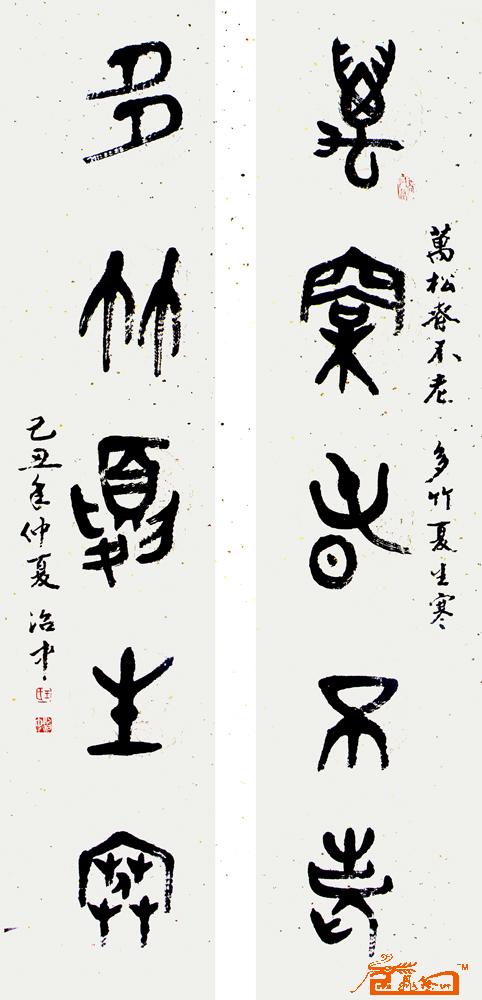 萬松春不老
萬松春不老 多竹夏生寒
多竹夏生寒
己丑年仲夏